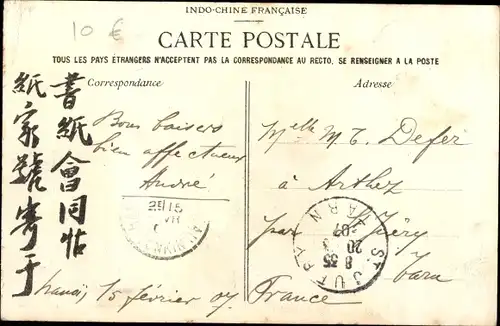 10 €
INDO-CHINE FRANÇAISE
CARTE POSTALE
TOUS LES PAYS ÉTRANGERS N'ACCEPTENT PAS LA CORRESPONDANCE AU RECTO, SE RENSEIGNER A LA POSTE
Correspondance
Bons baisers
bien affectueux
André
書紙會同帖
紙家號寄于
Hanoï, 15 février 07
Adresse
Melle M. T. Defer
à Arthez
par St Juéry
Tarn
France
ST JUERY
TARN
8 35
20
07